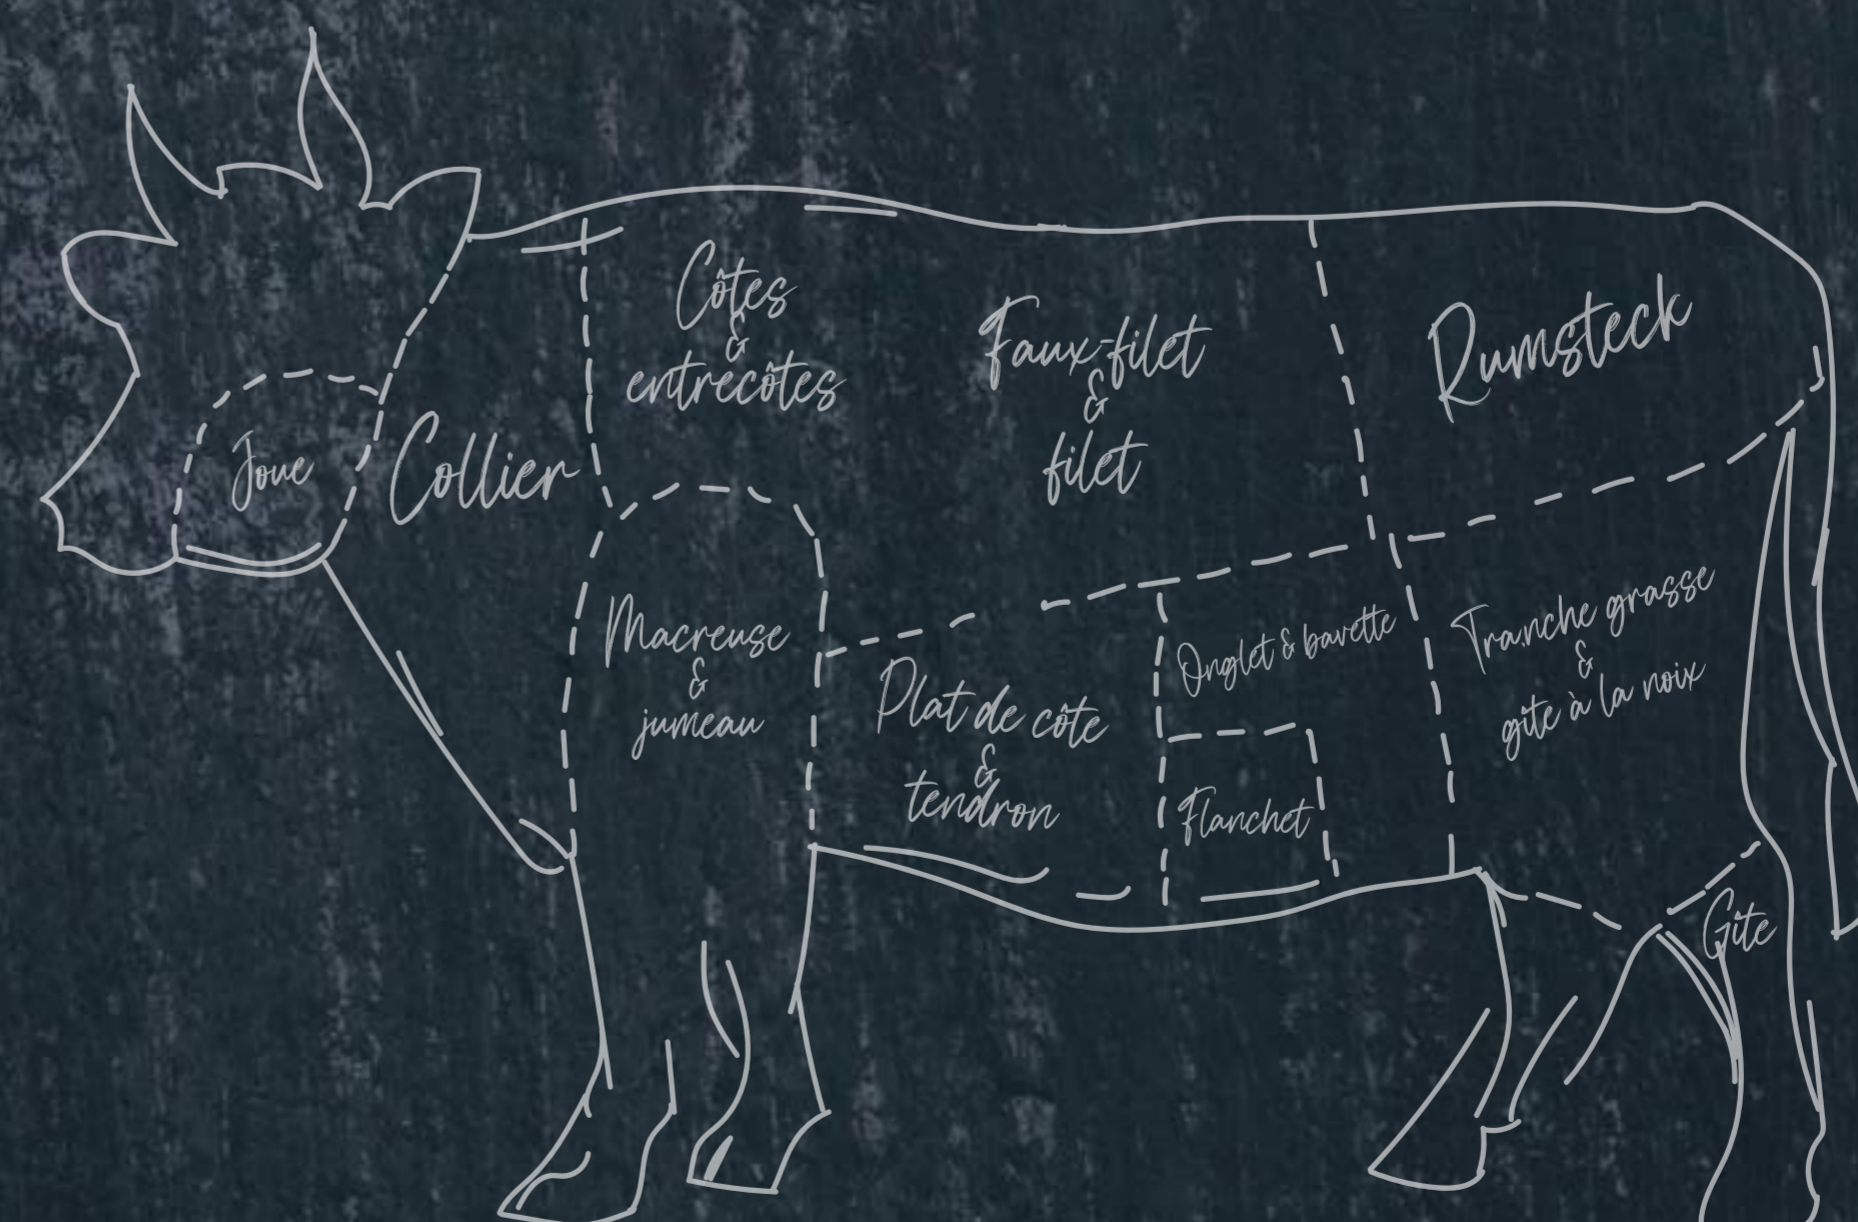 Côtes
&
entrecôtes
Faux-filet
&
filet
Rumsteck
Joue
Collier
Macreuse
&
jumeau
Plat de côte
&
tendron
Onglet & bavette
Flanchet
Tranche grasse
&
gîte à la noix
Gîte